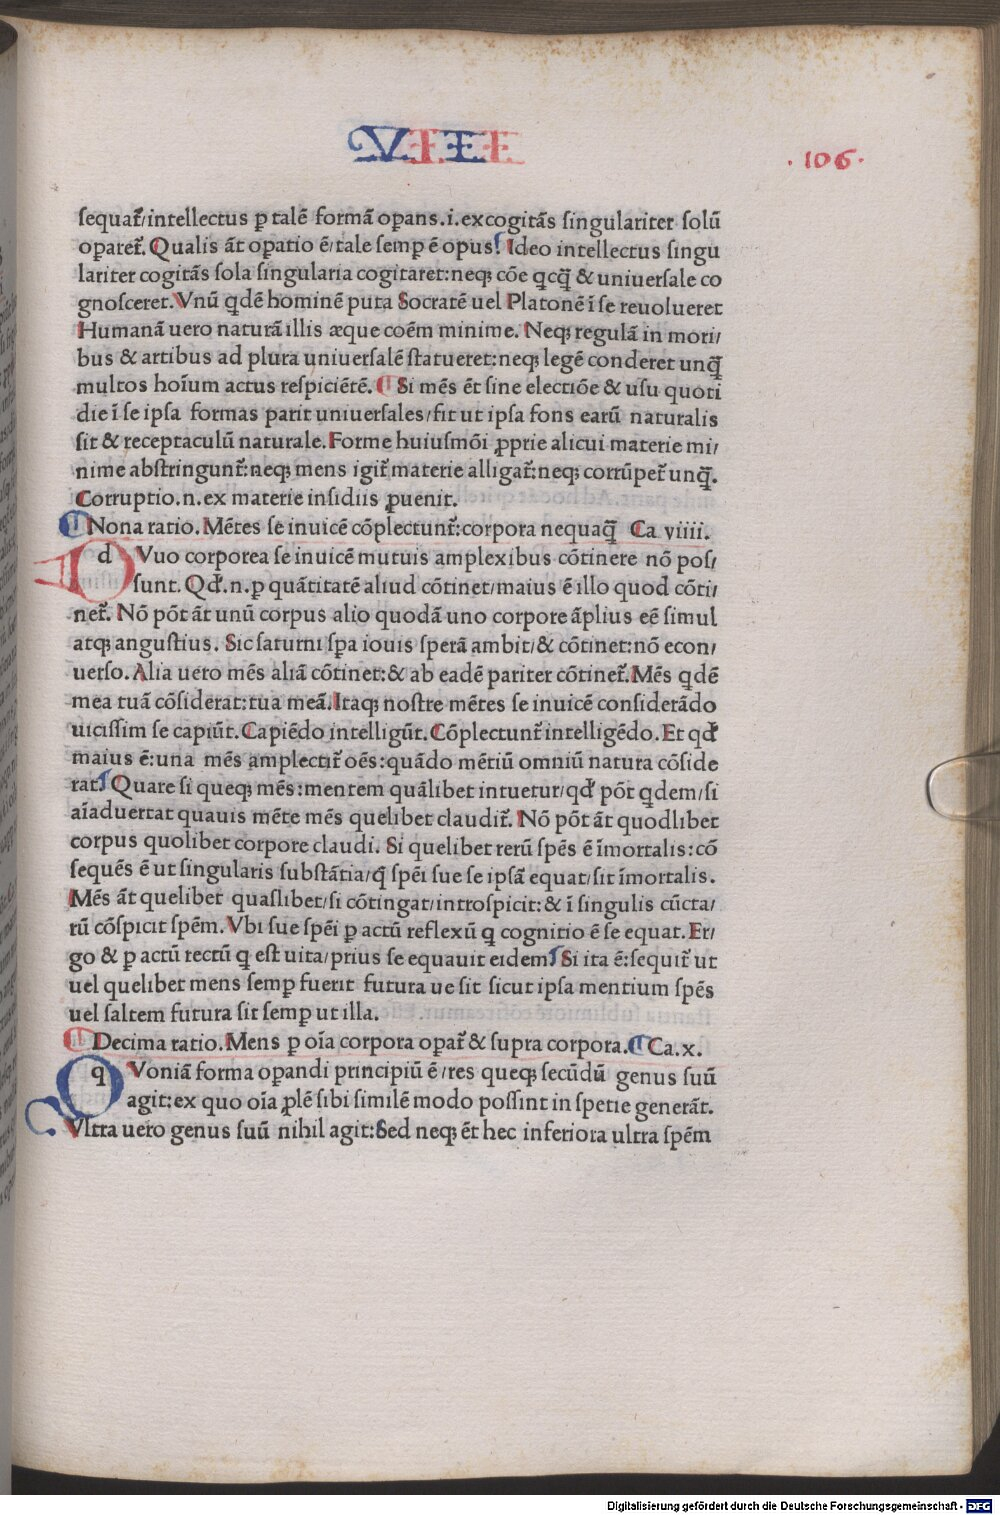 VIII
.106.
sequat᷑/intellectus ꝑ talē formā oꝑans.i.excogitās singulariter solū
oꝑaret᷑. Qualis āt oꝑatio ē/tale semꝑ ē opus. Ideo intellectus singu
lariter cogitās sola singularia cogitaret:neqꝫ cōe qcq̄ & uniuersale co
gnosceret. Vnū qdē hominē puta Socratē uel Platonē ī se reuolueret
Humanā uero naturā illis æque coēm minime. Neqꝫ regulā in mori/
bus & artibus ad plura uniuersalē statueret:neqꝫ legē conderet unq̄
multos hoīum actus respiciētē. ¶ Si mēs ēt sine electiōe & usu quoti
die ī se ipsa formas parit uniuersales/fit ut ipsa fons earū naturalis
sit & receptaculū naturale. Forme huiusmōi ꝓprie alicui materie mi/
nime abstringunt᷑:neqꝫ mens igit᷑ materie alligat᷑:neqꝫ corrūpet᷑ unq̄.
Corruptio.n.ex materie insidiis ꝓuenit.
¶ Nona ratio. Mētes se inuicē cōplectunt᷑:corpora nequaq̄ Ca viiii.
d Vuo corporea se inuicē mutuis amplexibus cōtinere nō pos/
sunt. Qd̓.n.ꝑ quātitatē aliud cōtinet/maius ē illo quod cōti/
net᷑. Nō pōt āt unū corpus alio quodā uno corpore āplius eē simul
atqꝫ angustius. Sic saturni spa iouis sperā ambit/& cōtinet:nō econ/
uerso. Alia uero mēs aliā cōtinet:& ab eadē pariter cōtinet᷑. Mēs qdē
mea tuā cōsiderat:tua meā. Itaqꝫ nostre mētes se inuicē considerādo
uicissim se capiūt. Capiēdo intelligūt. Cōplectunt᷑ intelligēdo. Et qd̓
maius ē:una mēs amplectit᷑ oēs:quādo mētiū omniū natura cōside
rat. Quare si queqꝫ mēs:mentem quālibet intuetur/qd̓ pōt qdem/si
aīaduertat quauis mēte mēs quelibet claudit᷑. Nō pōt āt quodlibet
corpus quolibet corpore claudi. Si quelibet rerū spēs ē īmortalis:cō
sequēs ē ut singularis substātia/q̄ spēi sue se ipsā equat/sit īmortalis.
Mēs āt quelibet quaslibet/si cōtingat/introspicit:& ī singulis cūcta/
rū cōspicit spēm. Vbi sue spēi ꝑ actū reflexū q cognitio ē se equat. Er/
go & ꝑ actū rectū q est uita/prius se equauit eidem Si ita ē:sequit᷑ ut
uel quelibet mens semꝑ fuerit futura ue sit sicut ipsa mentium spēs
uel saltem futura sit semꝑ ut illa.
¶ Decima ratio. Mens ꝑ oīa corpora oꝑat᷑ & supra corpora. ¶ Ca.x.
q Voniā forma oꝑandi principiū ē/res queqꝫ secūdū genus suū
agit:ex quo oīa ꝓlē sibi similē modo possint in spetie generāt.
Vltra uero genus suū nihil agit:Sed neqꝫ ēt hec inferiora ultra spēm
Digitalisierung gefördert durch die Deutsche Forschungsgemeinschaft - DFG